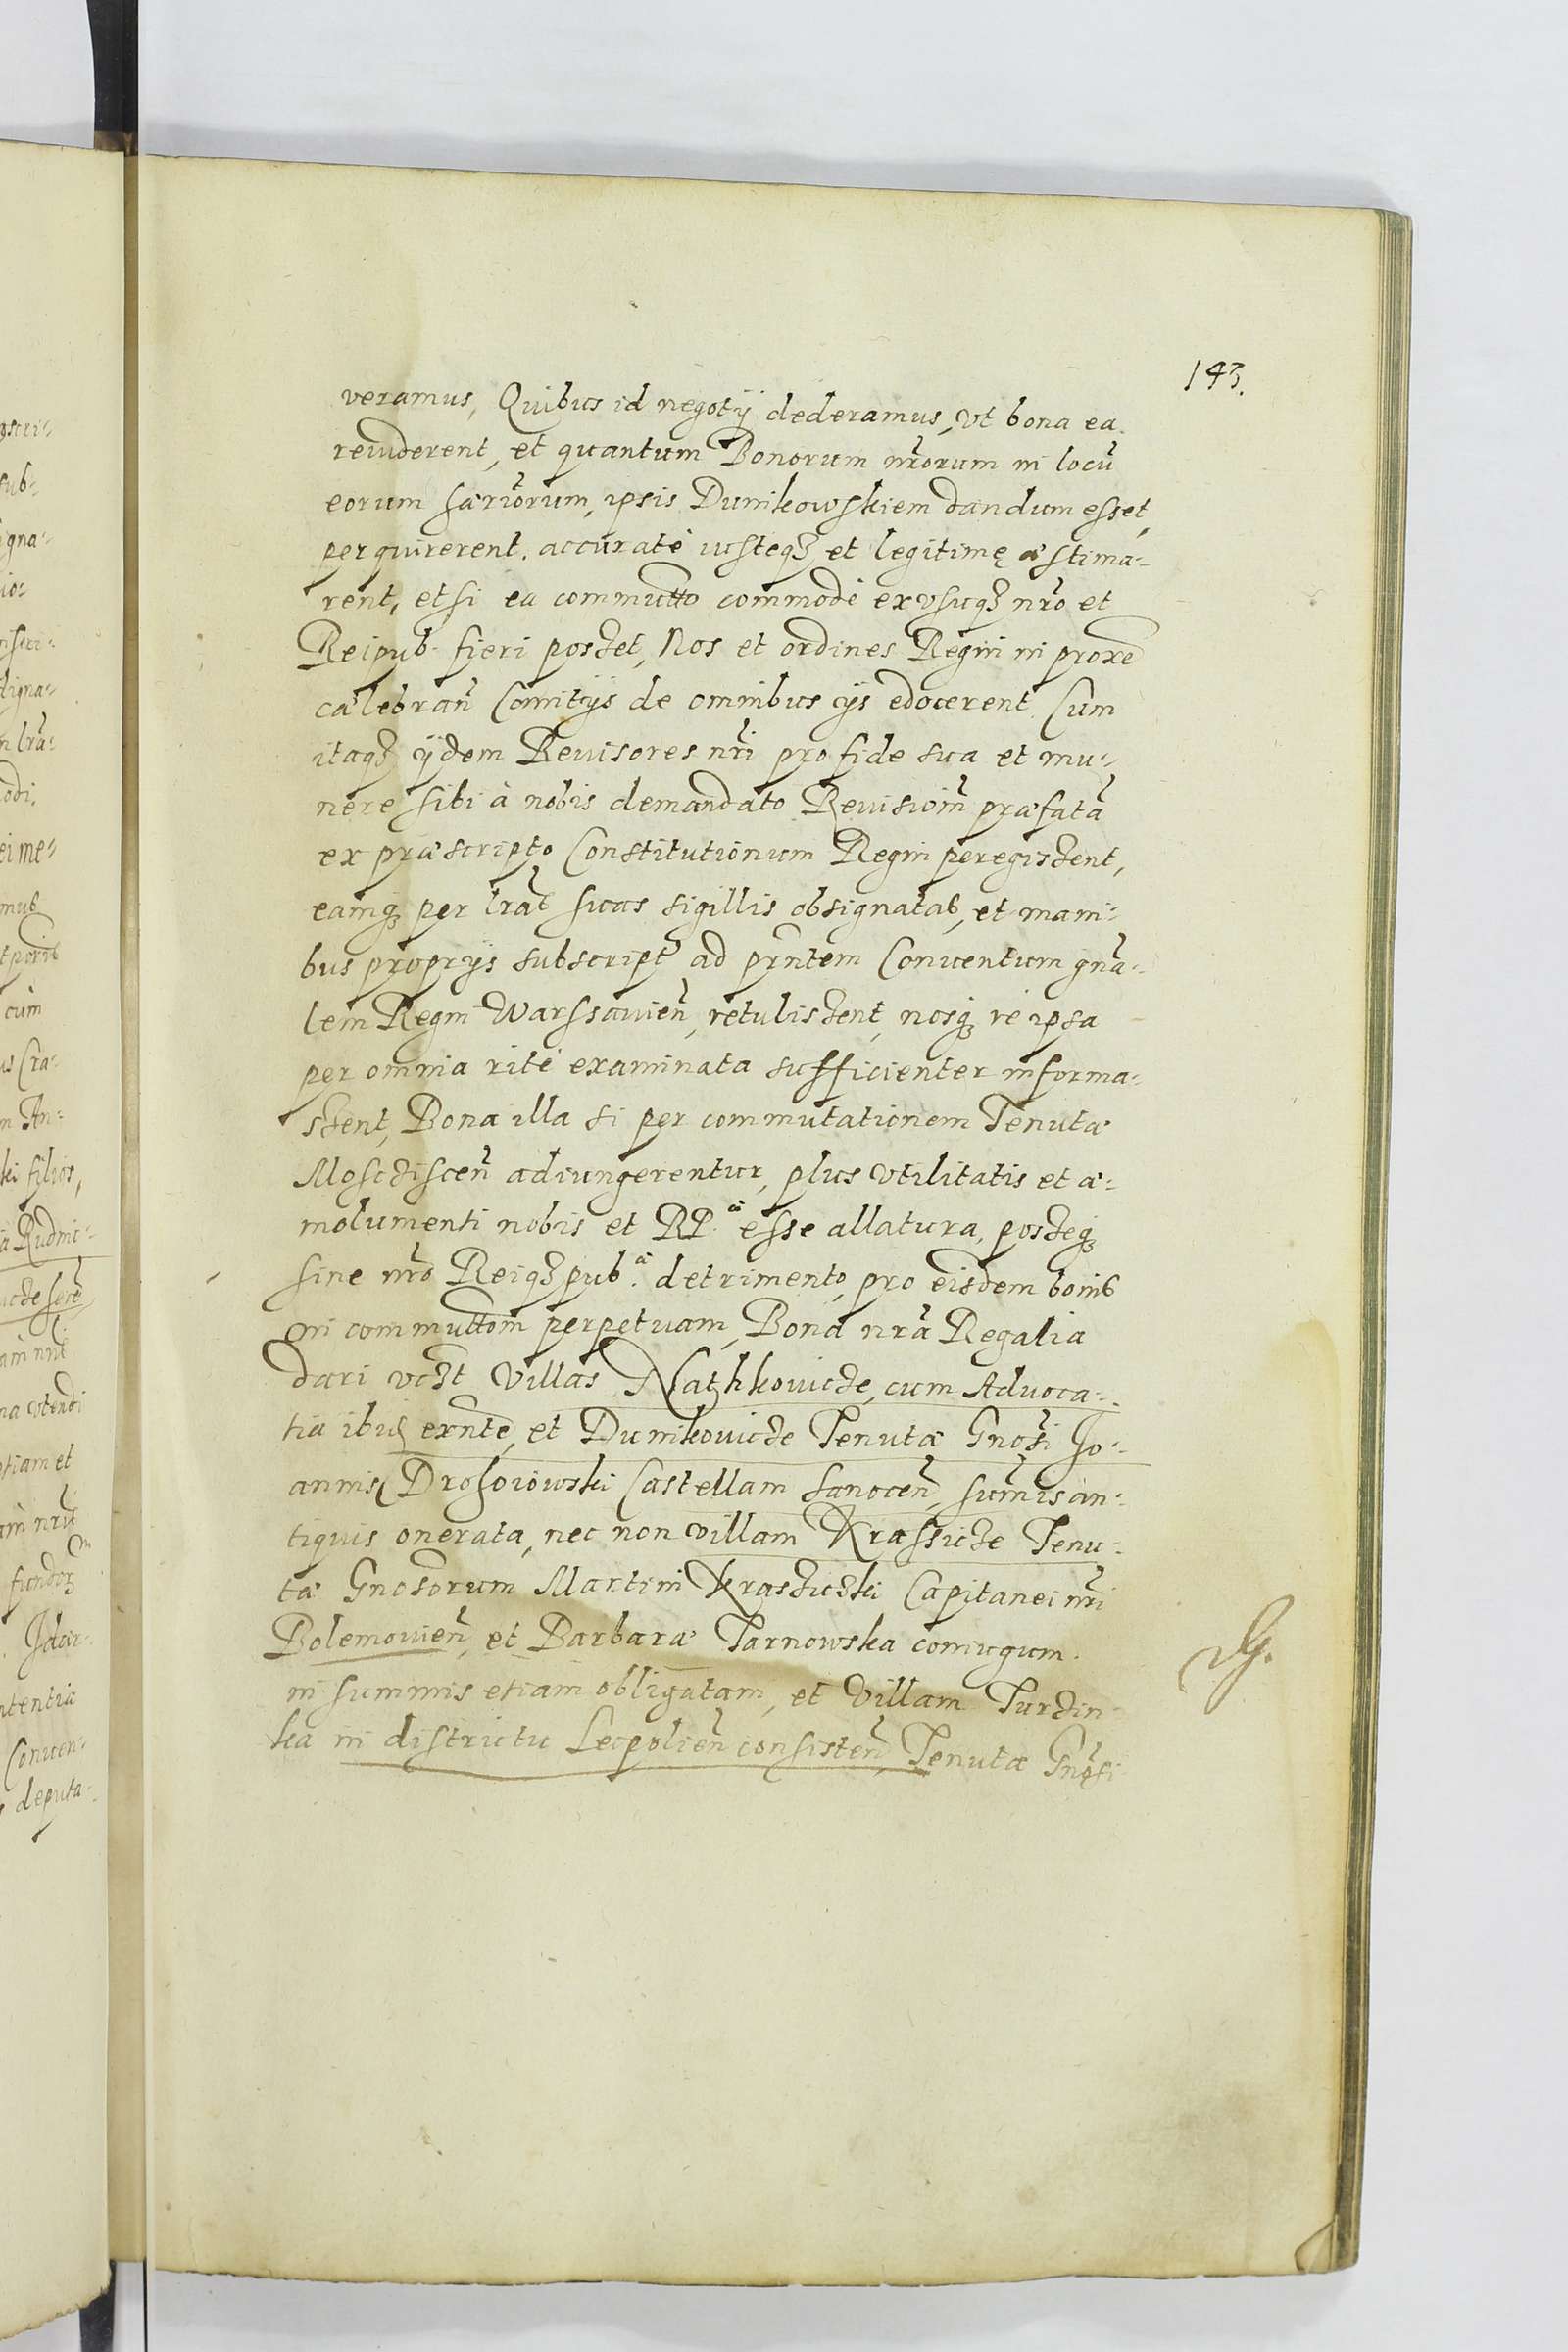 143.
veramus, Quibus id negotÿ dederamus, vt bona ea
reuiderent, et quantum Bonorum nr̃orum in locũ
eorum ipsis Dunikowskiem dandum esset,
perquirerent. accuratè iusteqȝ et legitimę æstima-
rent, et si ea commutt̃o commodè ex vsuqȝ nr̃o et
Reipub. fieri posset, Nos et ordines Regni in proxe͂
cælebran̄ Comitÿs de omnibus ijs edocerent. Cum
itaqȝ ÿdem Reuisores nr̃i pro fide sua et mu-
nere sibi à nobis demandato Reuisioñm præfatã
ex præscripto Constitutionum Regni peregissent,
eamqȝ per lr̃as suas sigillis obsignatas, et mani-
bus proprÿs subscript̃ ad prñtem Conuentum gnã-
lem Regni Warssauien̄, retulissent, nosqȝ re ipsa
per omnia ritè examinata sufficienter informa-
ssent, Bona illa si per commutationem Tenutæ
Mosciscen̄ adiungerentur, plus vtilitatis et æ-
molumenti nobis et RP.æ esse allatura, posseqȝ
sine nr̃o Reiqȝpub.æ detrimento, pro eisdem bonis
in commutt̃om perpetuam, Bona nr̃a Regalia
dari vczt Villas Natzhkouicze, cum Aduoca-
tia ibiȝ exñte, et Dunikouicze Tenutæ Gnõsi Jo-
annis Drohoiowski Castellani Sanocen̄, sum̃is an-
tiquis onerata, nec non villam Krassicze Tenu-
tæ Gnosorum Martini Krasziczki Capitanei nr̃i
Bolemouien̄, et Barbaræ Tarnowska coniugum
in summis etiam obligatam, et Villam Turzin-
ka in districtu Leopolien̄ consisten̄, Tenutæ Gnõsi